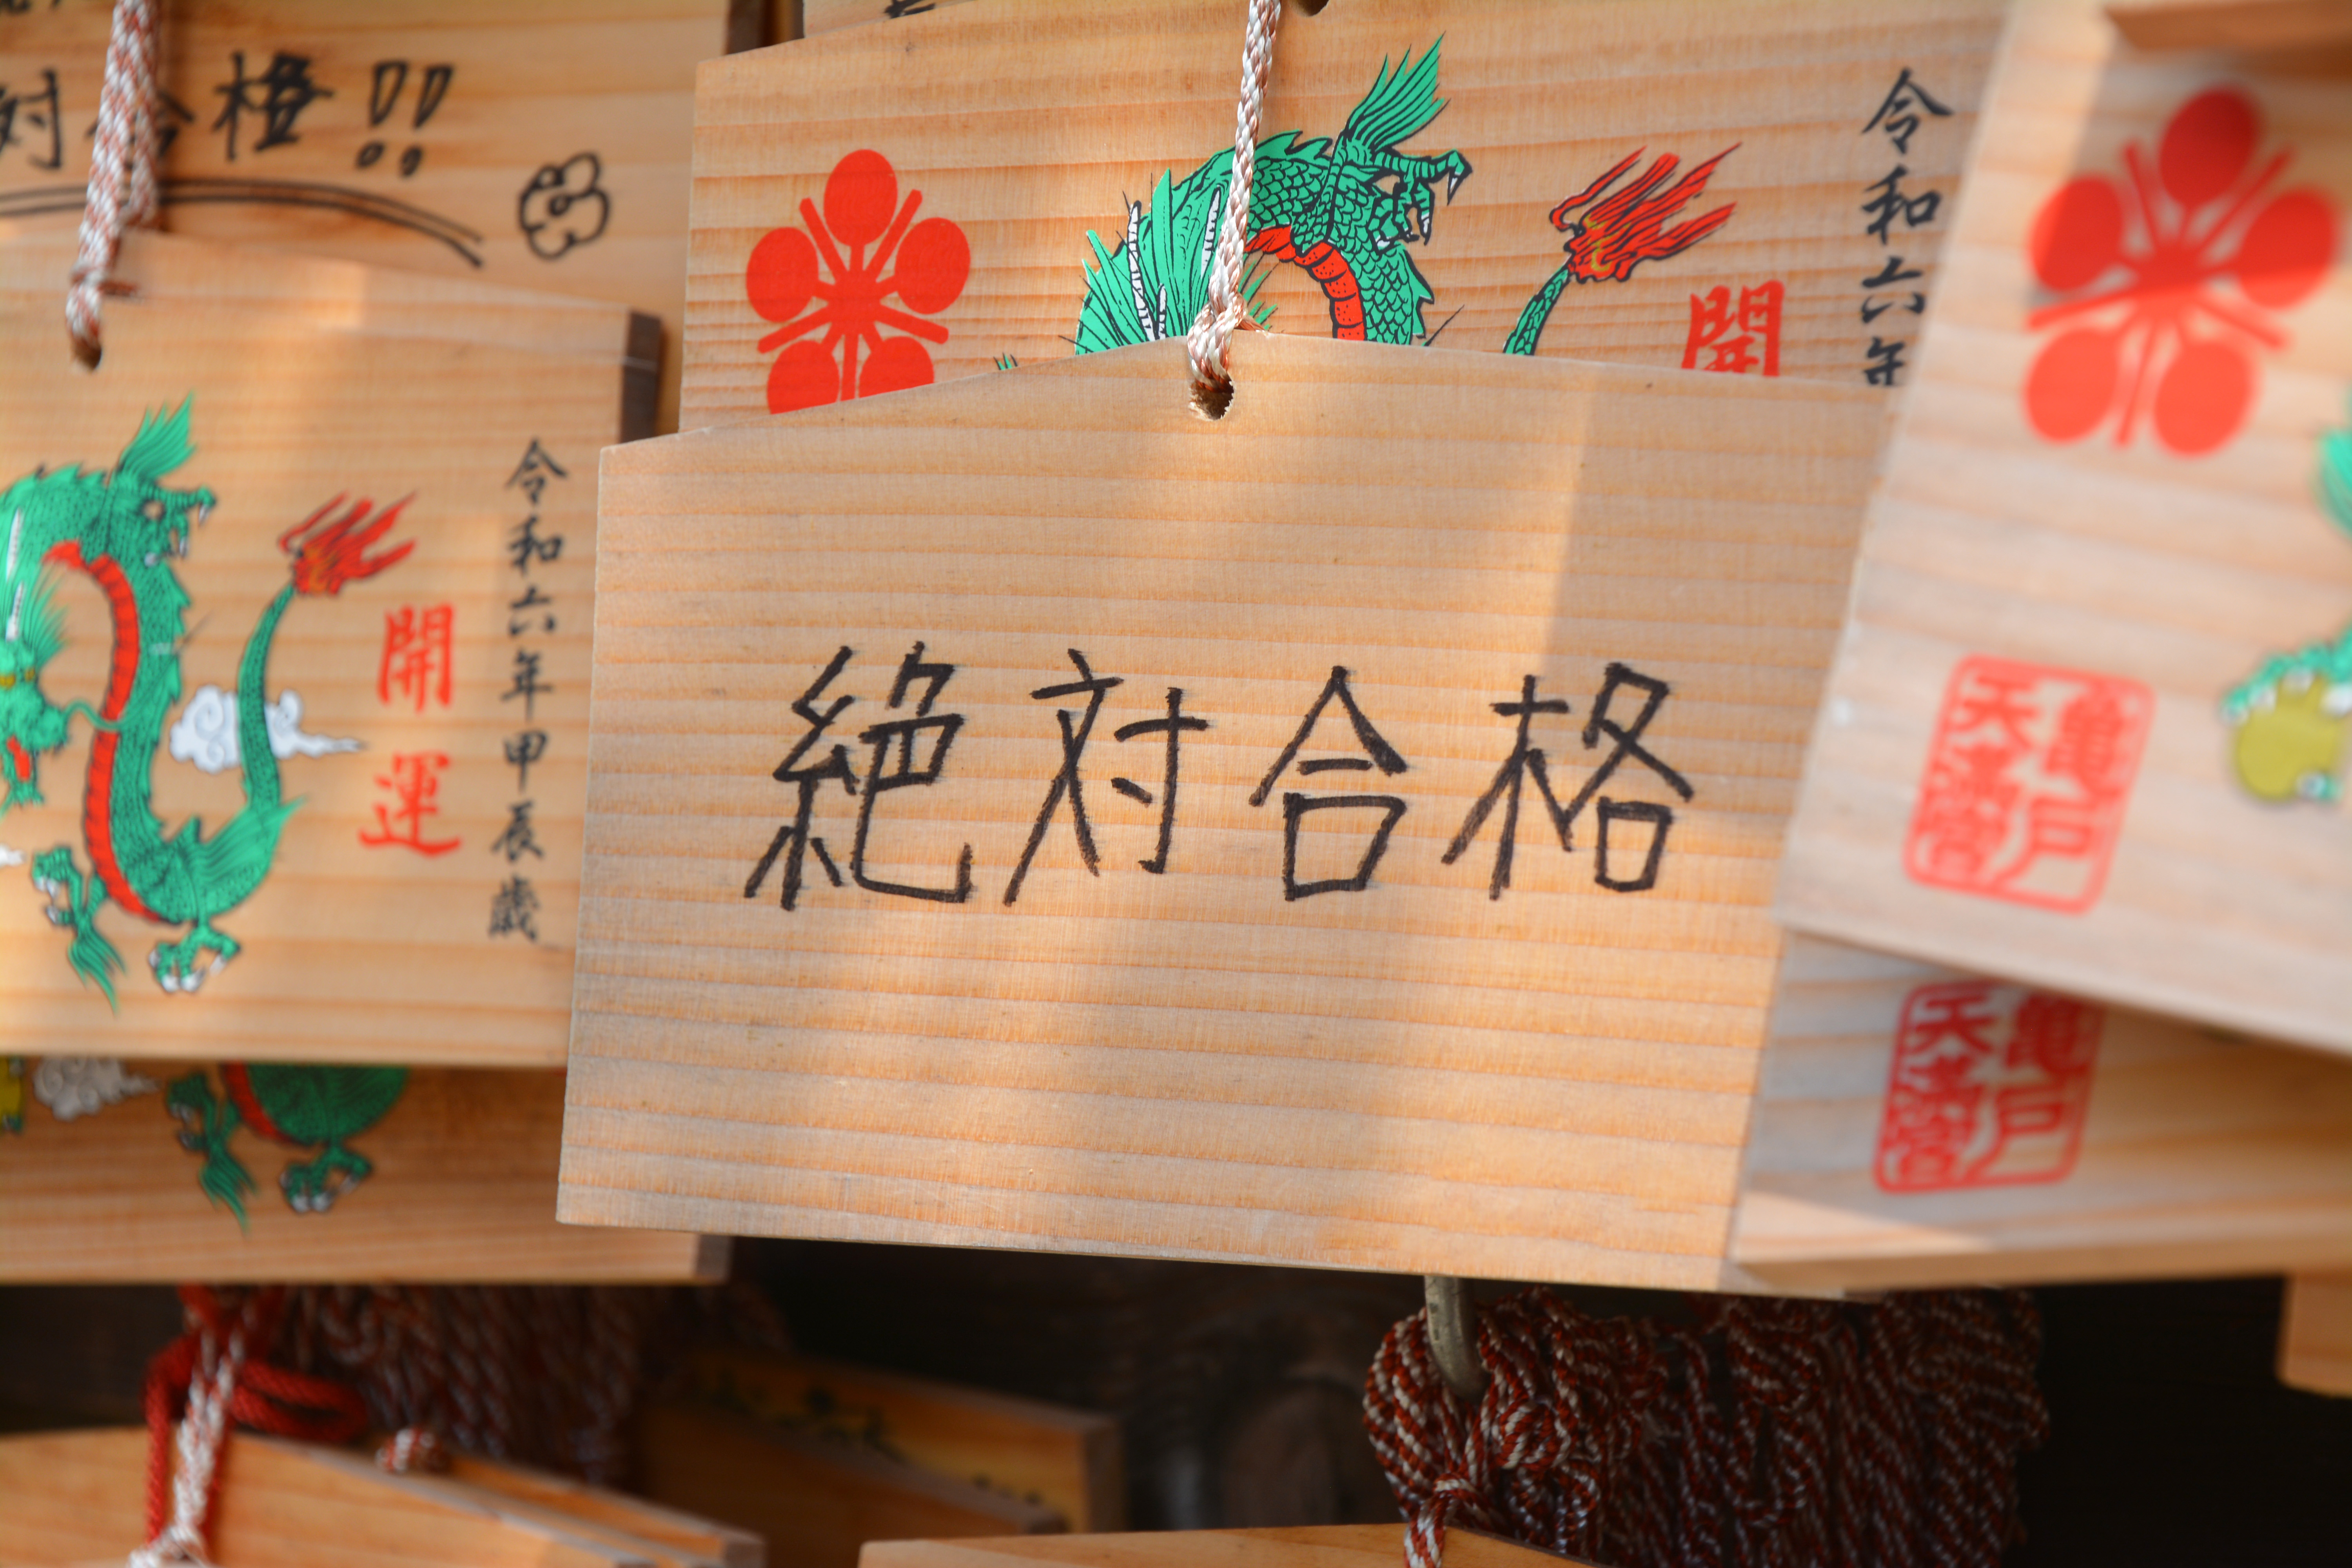 対合格!!
令和六年
開
絶対合格
令和六年甲辰歳
開運
亀戸
天満宮
亀戸
天満宮